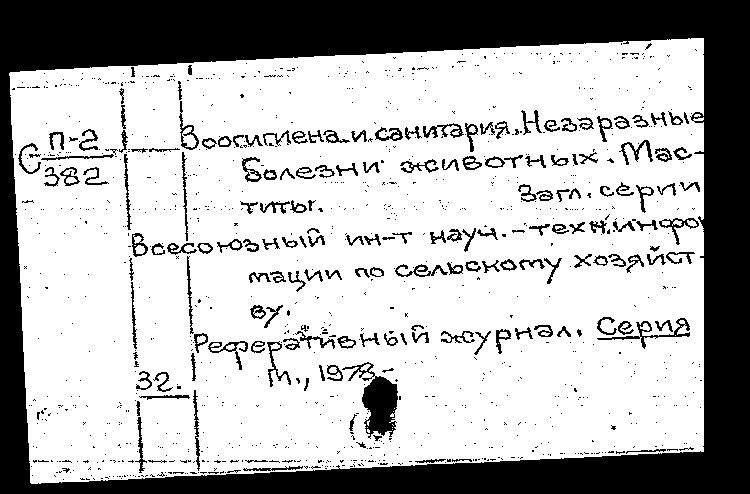 С П-2
382
Зоогигиена и санитария. Незаразные
болезни животных. Мас-
титы. Загл. серии
Всесоюзный ин-т науч.-техн. инфор
мации по сельскому хозяйст-
ву.
Реферативный журнал. Серия
32. М., 1973-